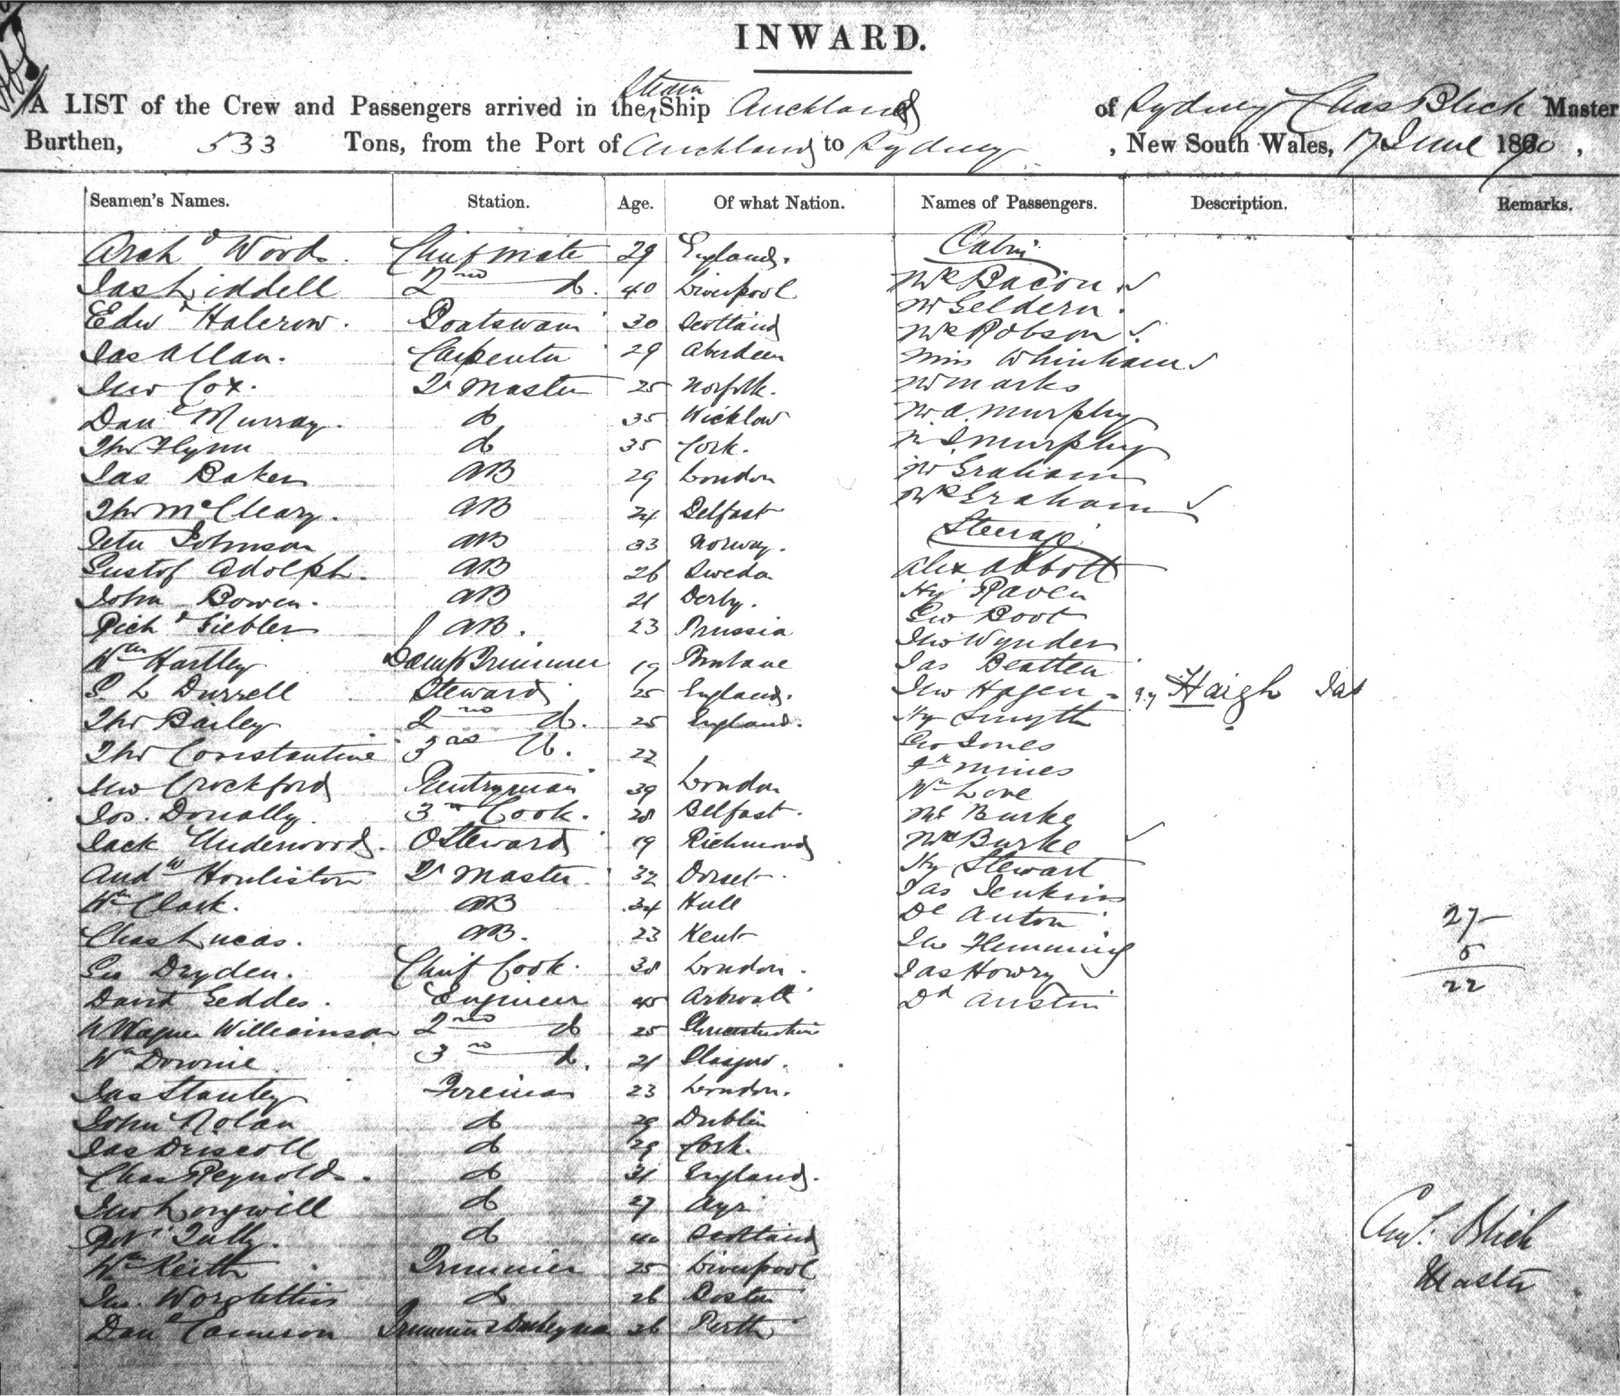 INWARD.
A LIST of the Crew and Passengers arrived in the Steam Ship Auckland of Sydney Chas Blick Master
Burthen, 533 Tons, from the Port of Auckland to Sydney, New South Wales, 17 June 1870,
Seamen's Names. Station. Age. Of what Nation. Names of Passengers. Description. Remarks.
Archd Woods. Chief mate 29 England. Cabin
Jas Liddell 2nd do. 40 Liverpool Mrs Bacon
Edwd Halcrow. Boatswain 30 Scotland Mr Geldern.
Jas Allan. Carpenter 29 Aberdeen Mrs Robson
Jno Cox. Qr Master 25 Norfolk. Miss Whinham
Danl Murray. do 35 Wicklow Mr Marks
Thos Flynn do 35 Cork. Mr A. Murphy
Jas Baker AB 29 London Murphy
Thos McCleary. AB 24 Belfast Mr Graham
Peter Johnson AB 33 Norway. Mrs Graham
Gustof Adolph. AB 26 Sweden Steerage
John Bowen. AB 21 Derby. Alex Abbott
Richd Fiebler AB. 23 Prussia Hy Raven
Wm Hartley Trimmer 19 Brisbane Geo Boot
Durrell Steward 25 England. Jno Wynden
Thos Bailey 2nd do. 25 England. Jas Beatten
Thos Constantine 3rd do. 22 Jno Hagen - qy Haigh Jas
Jno Crockford Pantryman 39 London Hy Smyth
Jos. Donally. 3rd Cook. 28 Belfast. Geo Jones
Jack Underwood. O Steward 19 Richmond Mines
Andw Houliston Qr Master. 32 Dorset. Wm Love
Wm Clark. AB 34 Hull Mr Burke
Chas Lucas. AB. 23 Kent Mrs Burke
Geo Dryden. Chief Cook. 38 London. Hy Stewart
David Geddes. Engineer 45 Jas Jenkins
Williamson 2nd do 25 Gloucestershire Dl Anton
Wm Downie. 3rd do. 21 Glasgow. Jno Flemming
Jas Stanley Fireman 23 London. Jas Howry
John Nolan do 29 Dublin Dd Austin
Jas Driscoll do 29 Cork.
Chas Reynolds. do 31 England.
Jno Longwill do 27 Ayr
Tully. do Scotland
Wm Keith Trimmer 25 Liverpool
Jno. do 26 Boston
Danl Cameron Trimmer & Donkeyman 26 Perth
27
5
22
Chas. Blick
Master